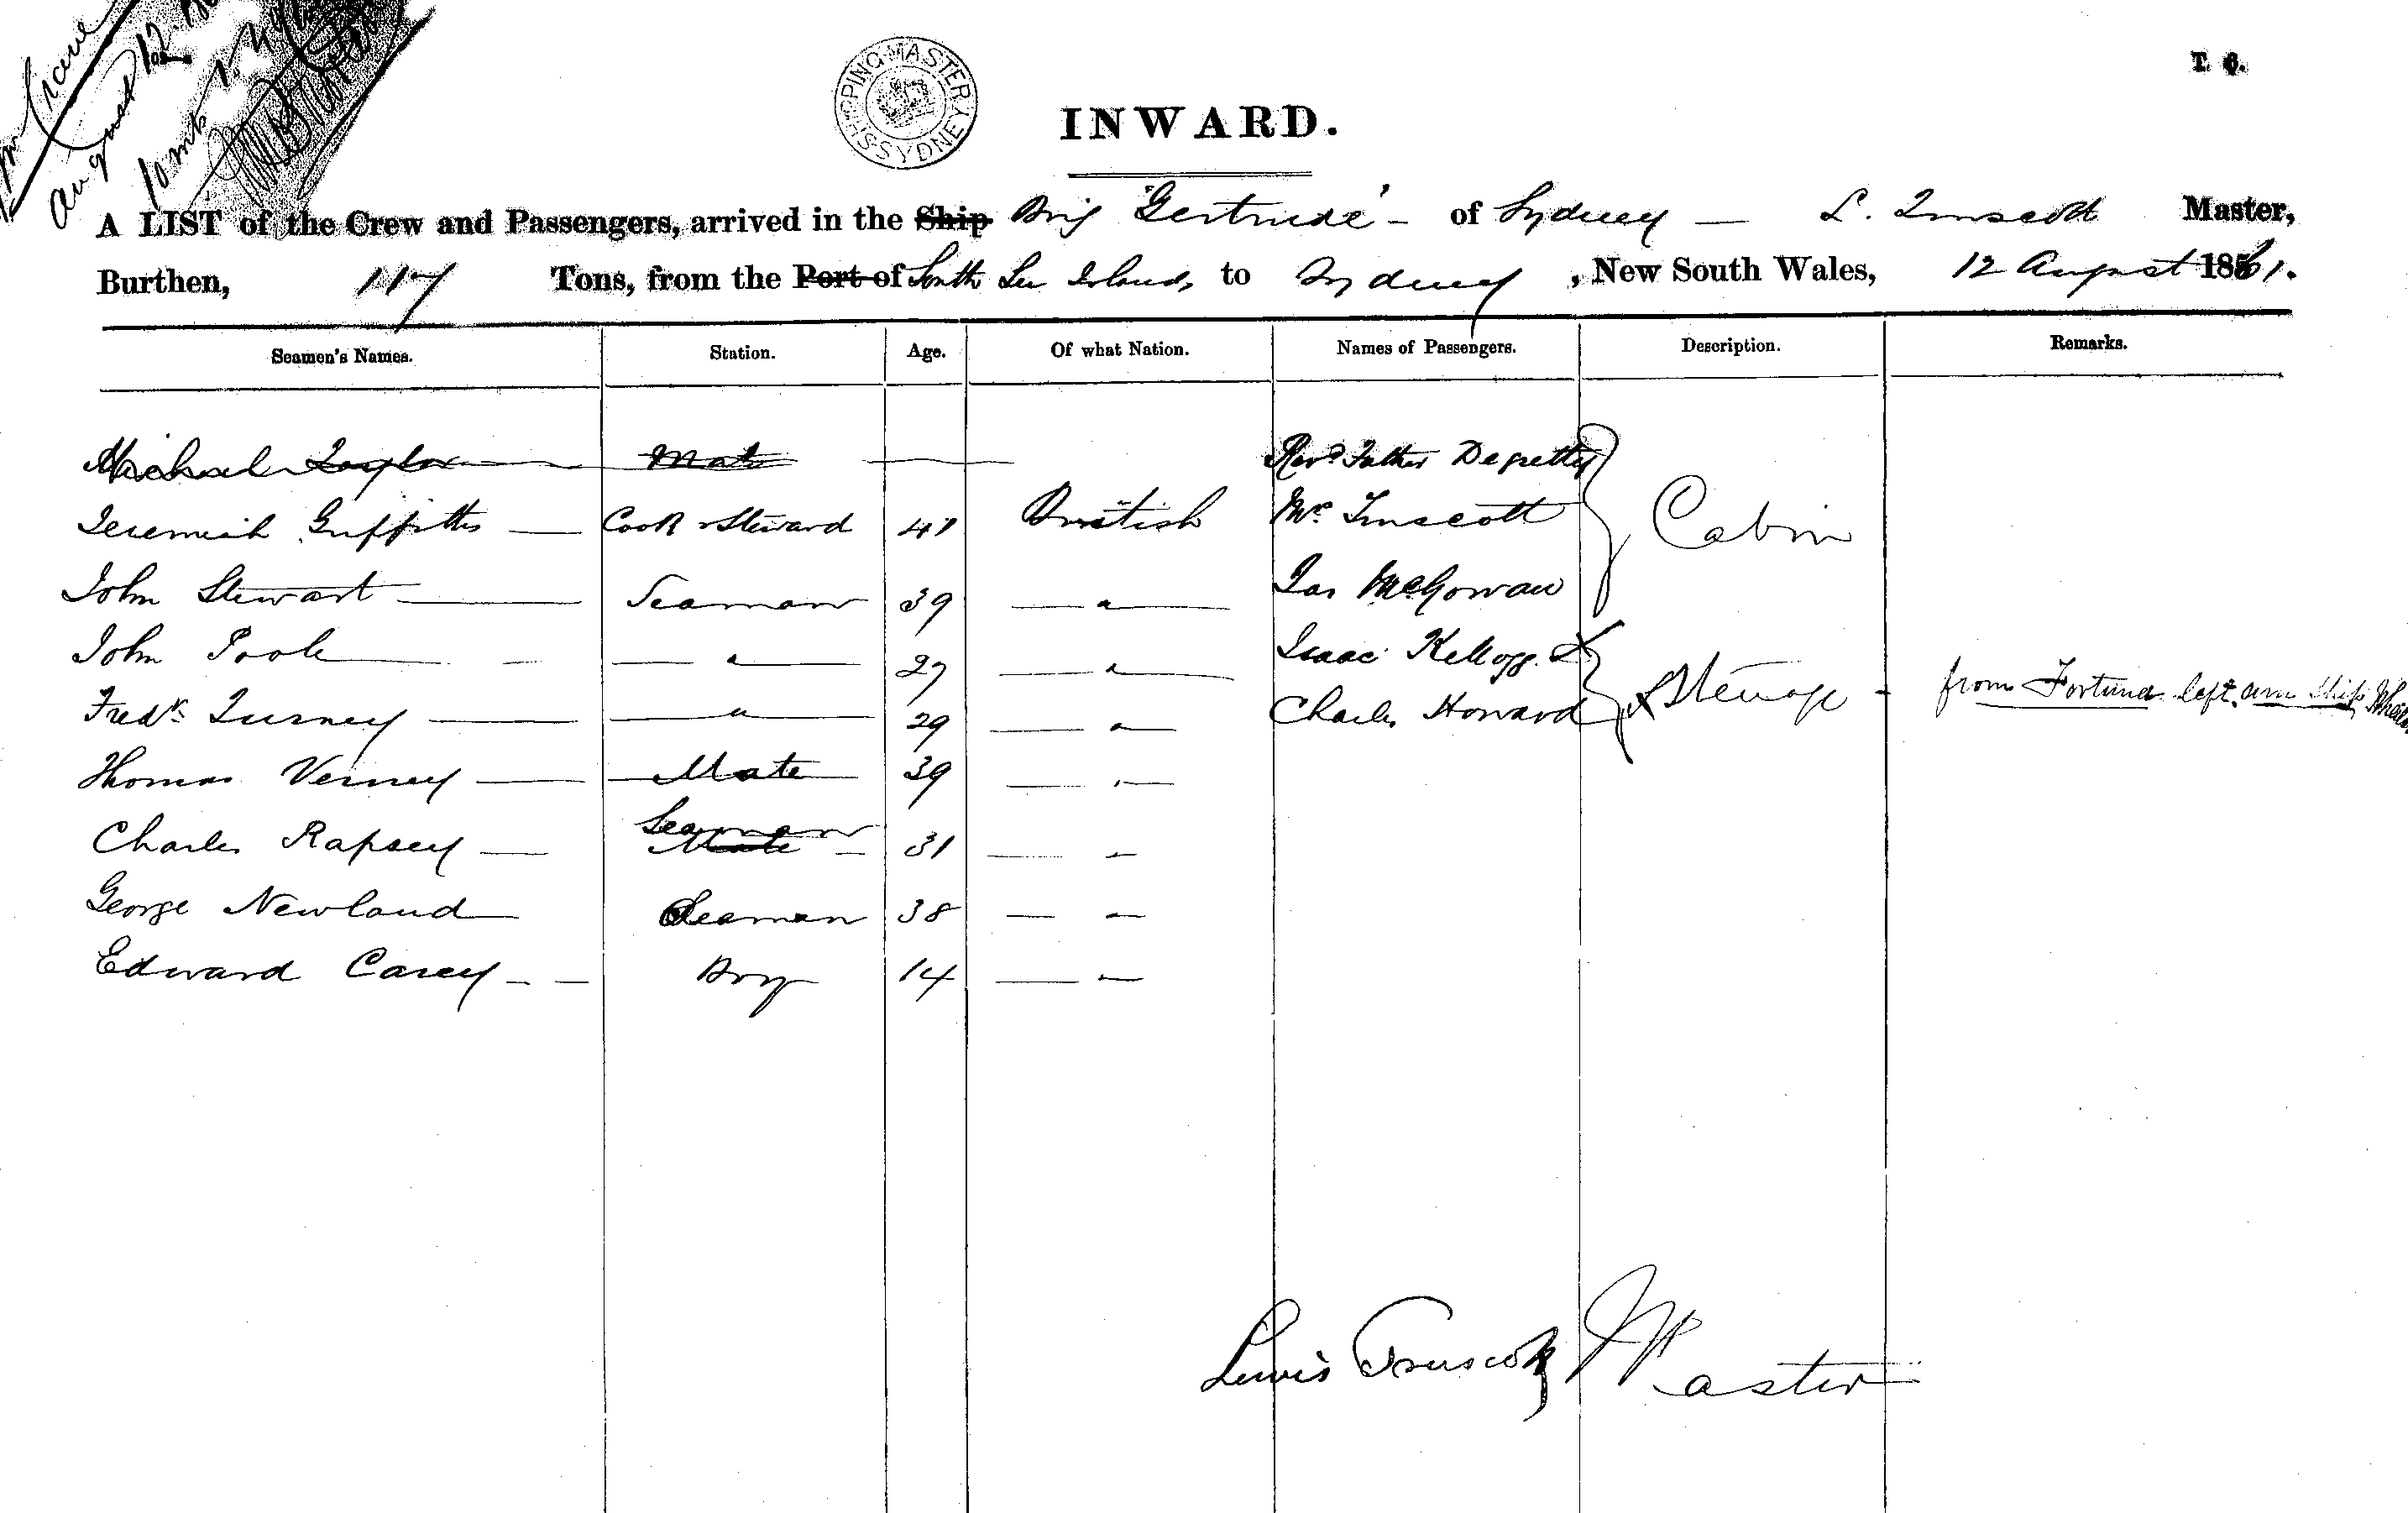 August 12
SHIPPING MASTER SYDNEY
T. 6.
INWARD.
A LIST of the Crew and Passengers, arrived in the Ship Brig "Gertrude" - of Sydney — L. Truscott Master,
Burthen, 117 Tons, from the Port of South Sea Islands to Sydney, New South Wales, 12 August 1861.
Seamen's Names. Station. Age. Of what Nation. Names of Passengers. Description. Remarks.
Michael Taylor Mate Revd Father
Jeremiah Griffiths Cook & Steward 41 British Mr Truscott Cabin
John Stewart Seaman 39 " Jas McGowan
John Poole " 27 " Isaac Kellogg X
Fredk Turney " 29 " Charles Howard X Steerage - from Fortuna left am ship
Thomas Verney Mate 39 "
Charles Rapsey Seaman Mate 31 "
George Newland Seaman 38 "
Edward Carey Boy 14 "
Lewis Truscott Master